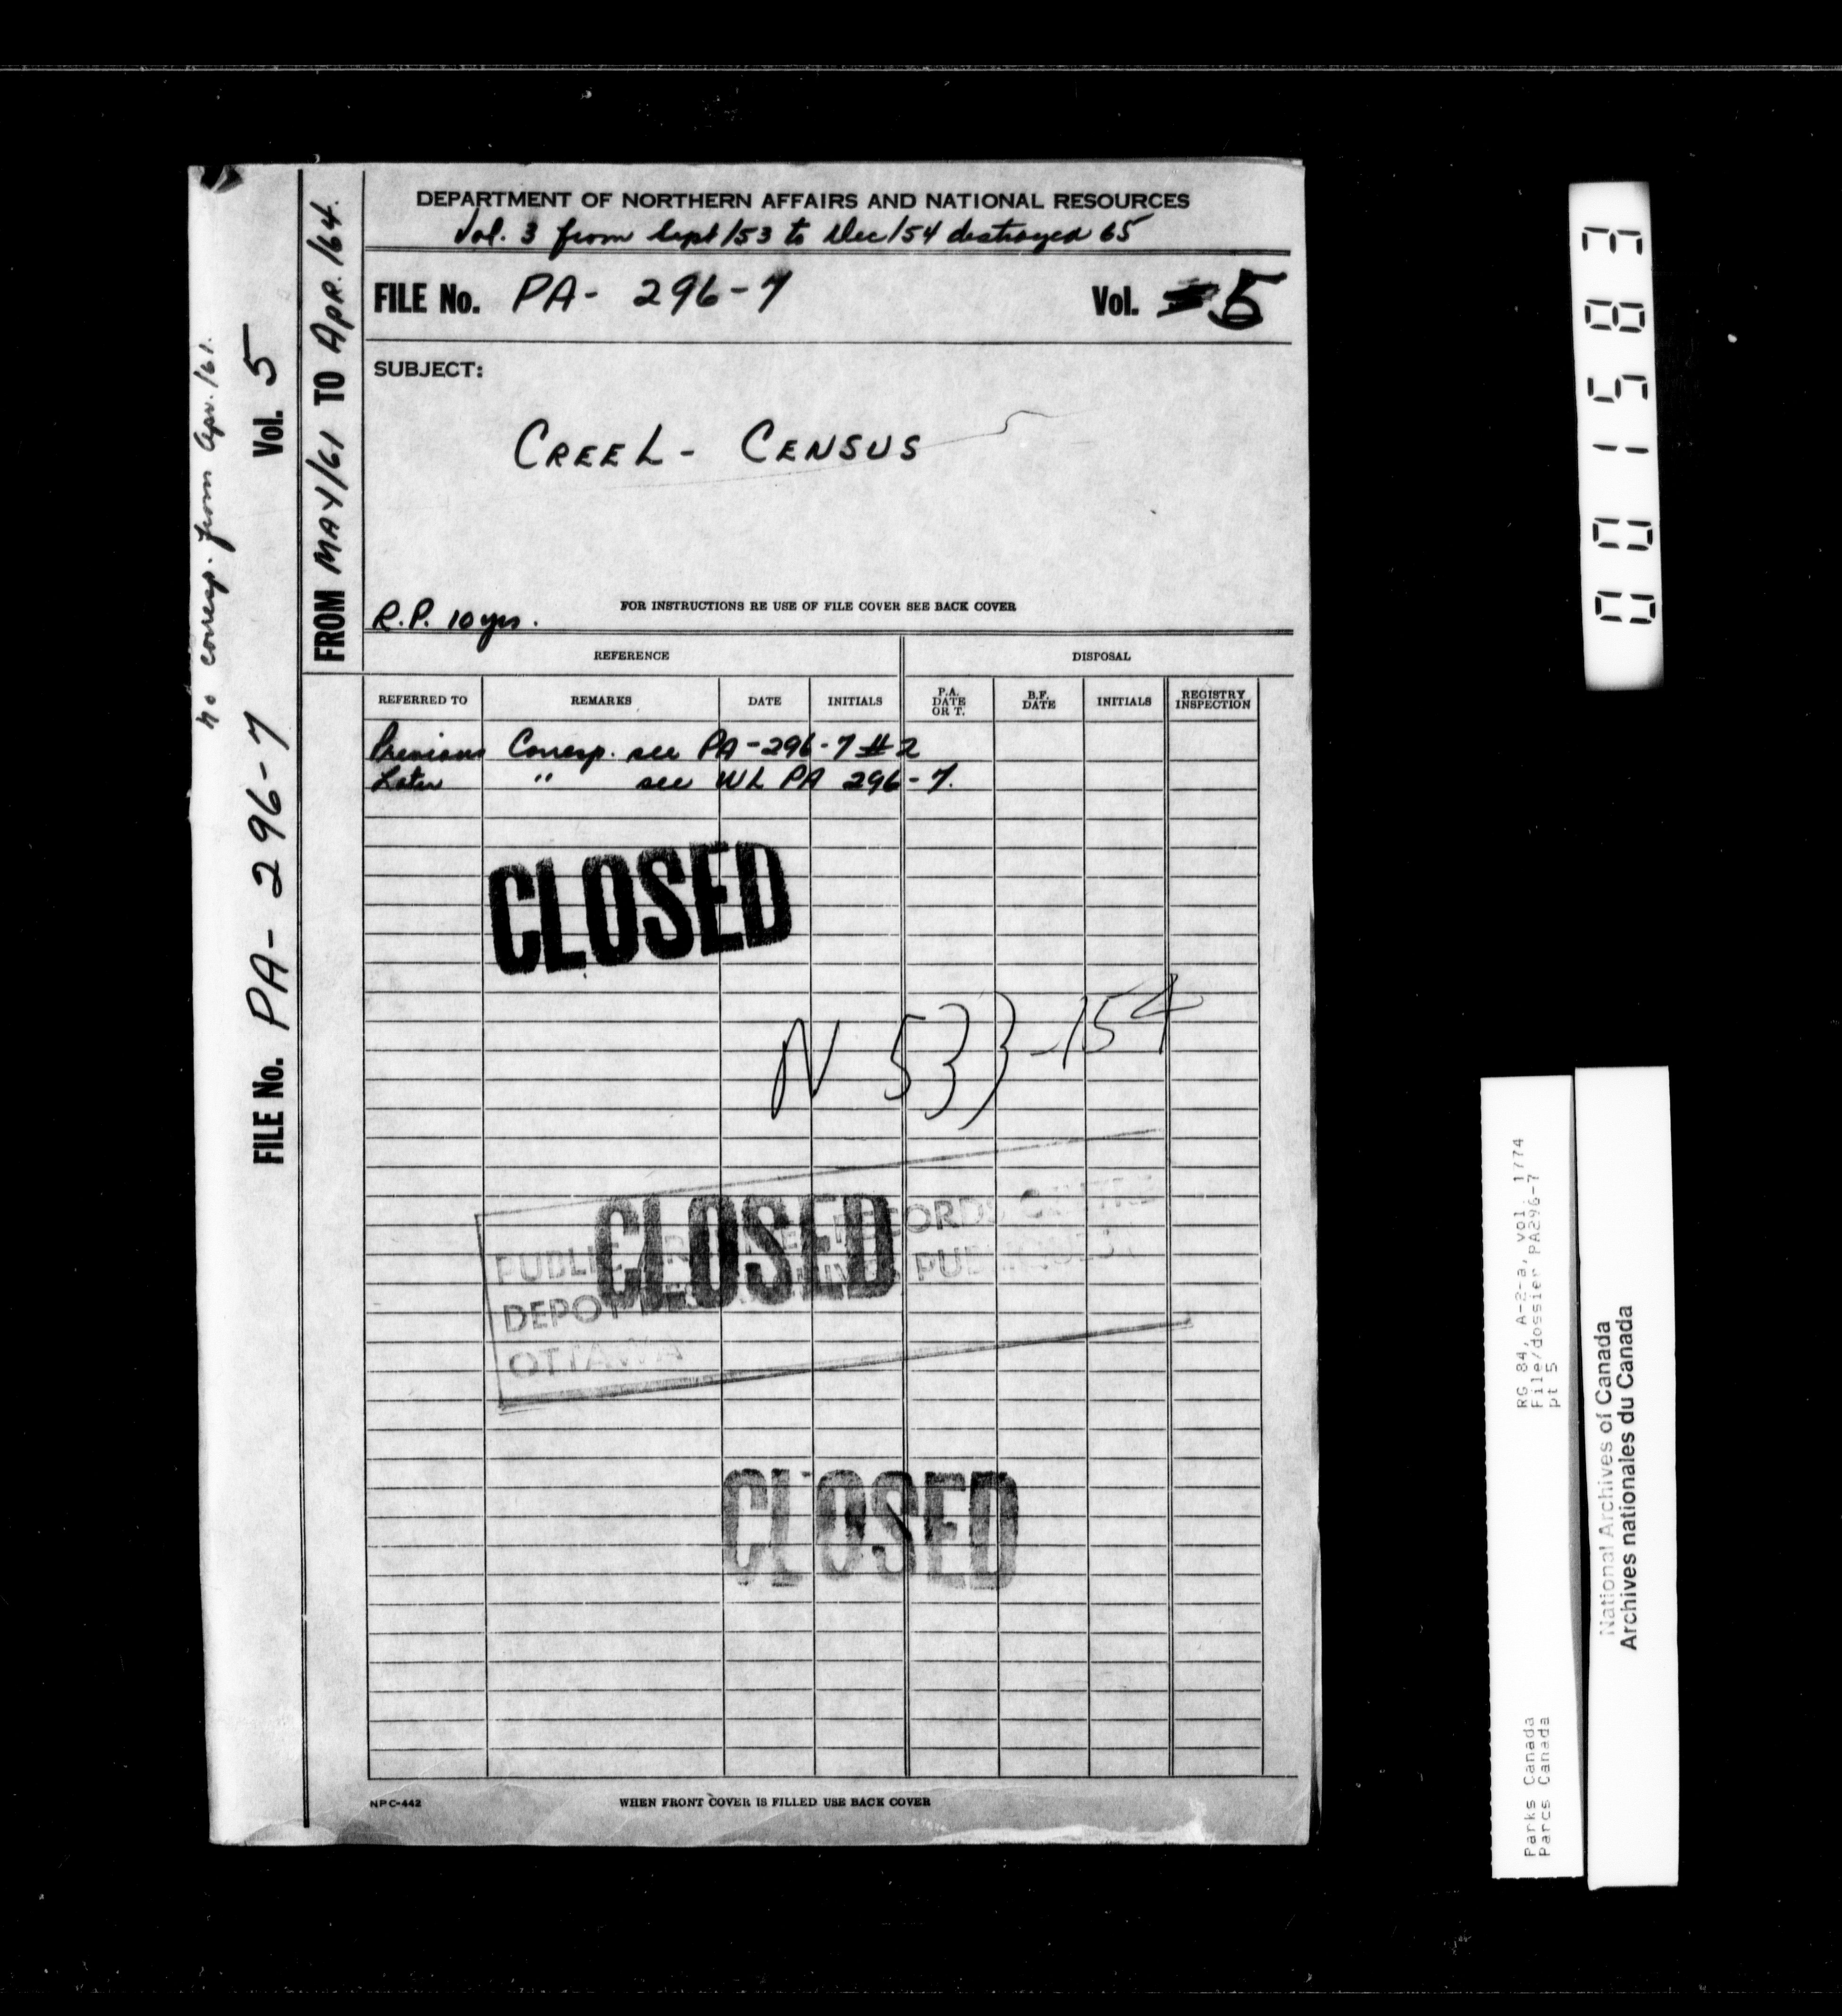 DEPARTMENT OF NORTHERN AFFAIRS AND NATIONAL RESOURCES
Vol. 3 from Sept/53 to Dec/54 destroyed 65
FILE No. PA- 296-7 Vol. 5
SUBJECT:
CREEL - CENSUS
FOR INSTRUCTIONS RE USE OF FILE COVER SEE BACK COVER
R.P. 10 yrs.
REFERENCE DISPOSAL
REFERRED TO REMARKS DATE INITIALS P.A. DATE OR T. B.F. DATE INITIALS REGISTRY INSPECTION
Previous Corresp. see PA-296-7 #2
Later " see WL PA 296-7.
CLOSED
N 533-154
CLOSED
PUBLIC RECORDS CENTRE
DEPOT PUBLIQUES
OTTAWA
CLOSED
NPC-442 WHEN FRONT COVER IS FILLED USE BACK COVER
FROM MAY/61 TO APR./64.
FILE No. PA- 296-7 Vol. 5
no corresp. from Apr./61.
001583
RG 84, A-2-a, vol. 1774
File/dossier PA296-7
pt 5
Parks Canada
Parcs Canada
National Archives of Canada
Archives nationales du Canada